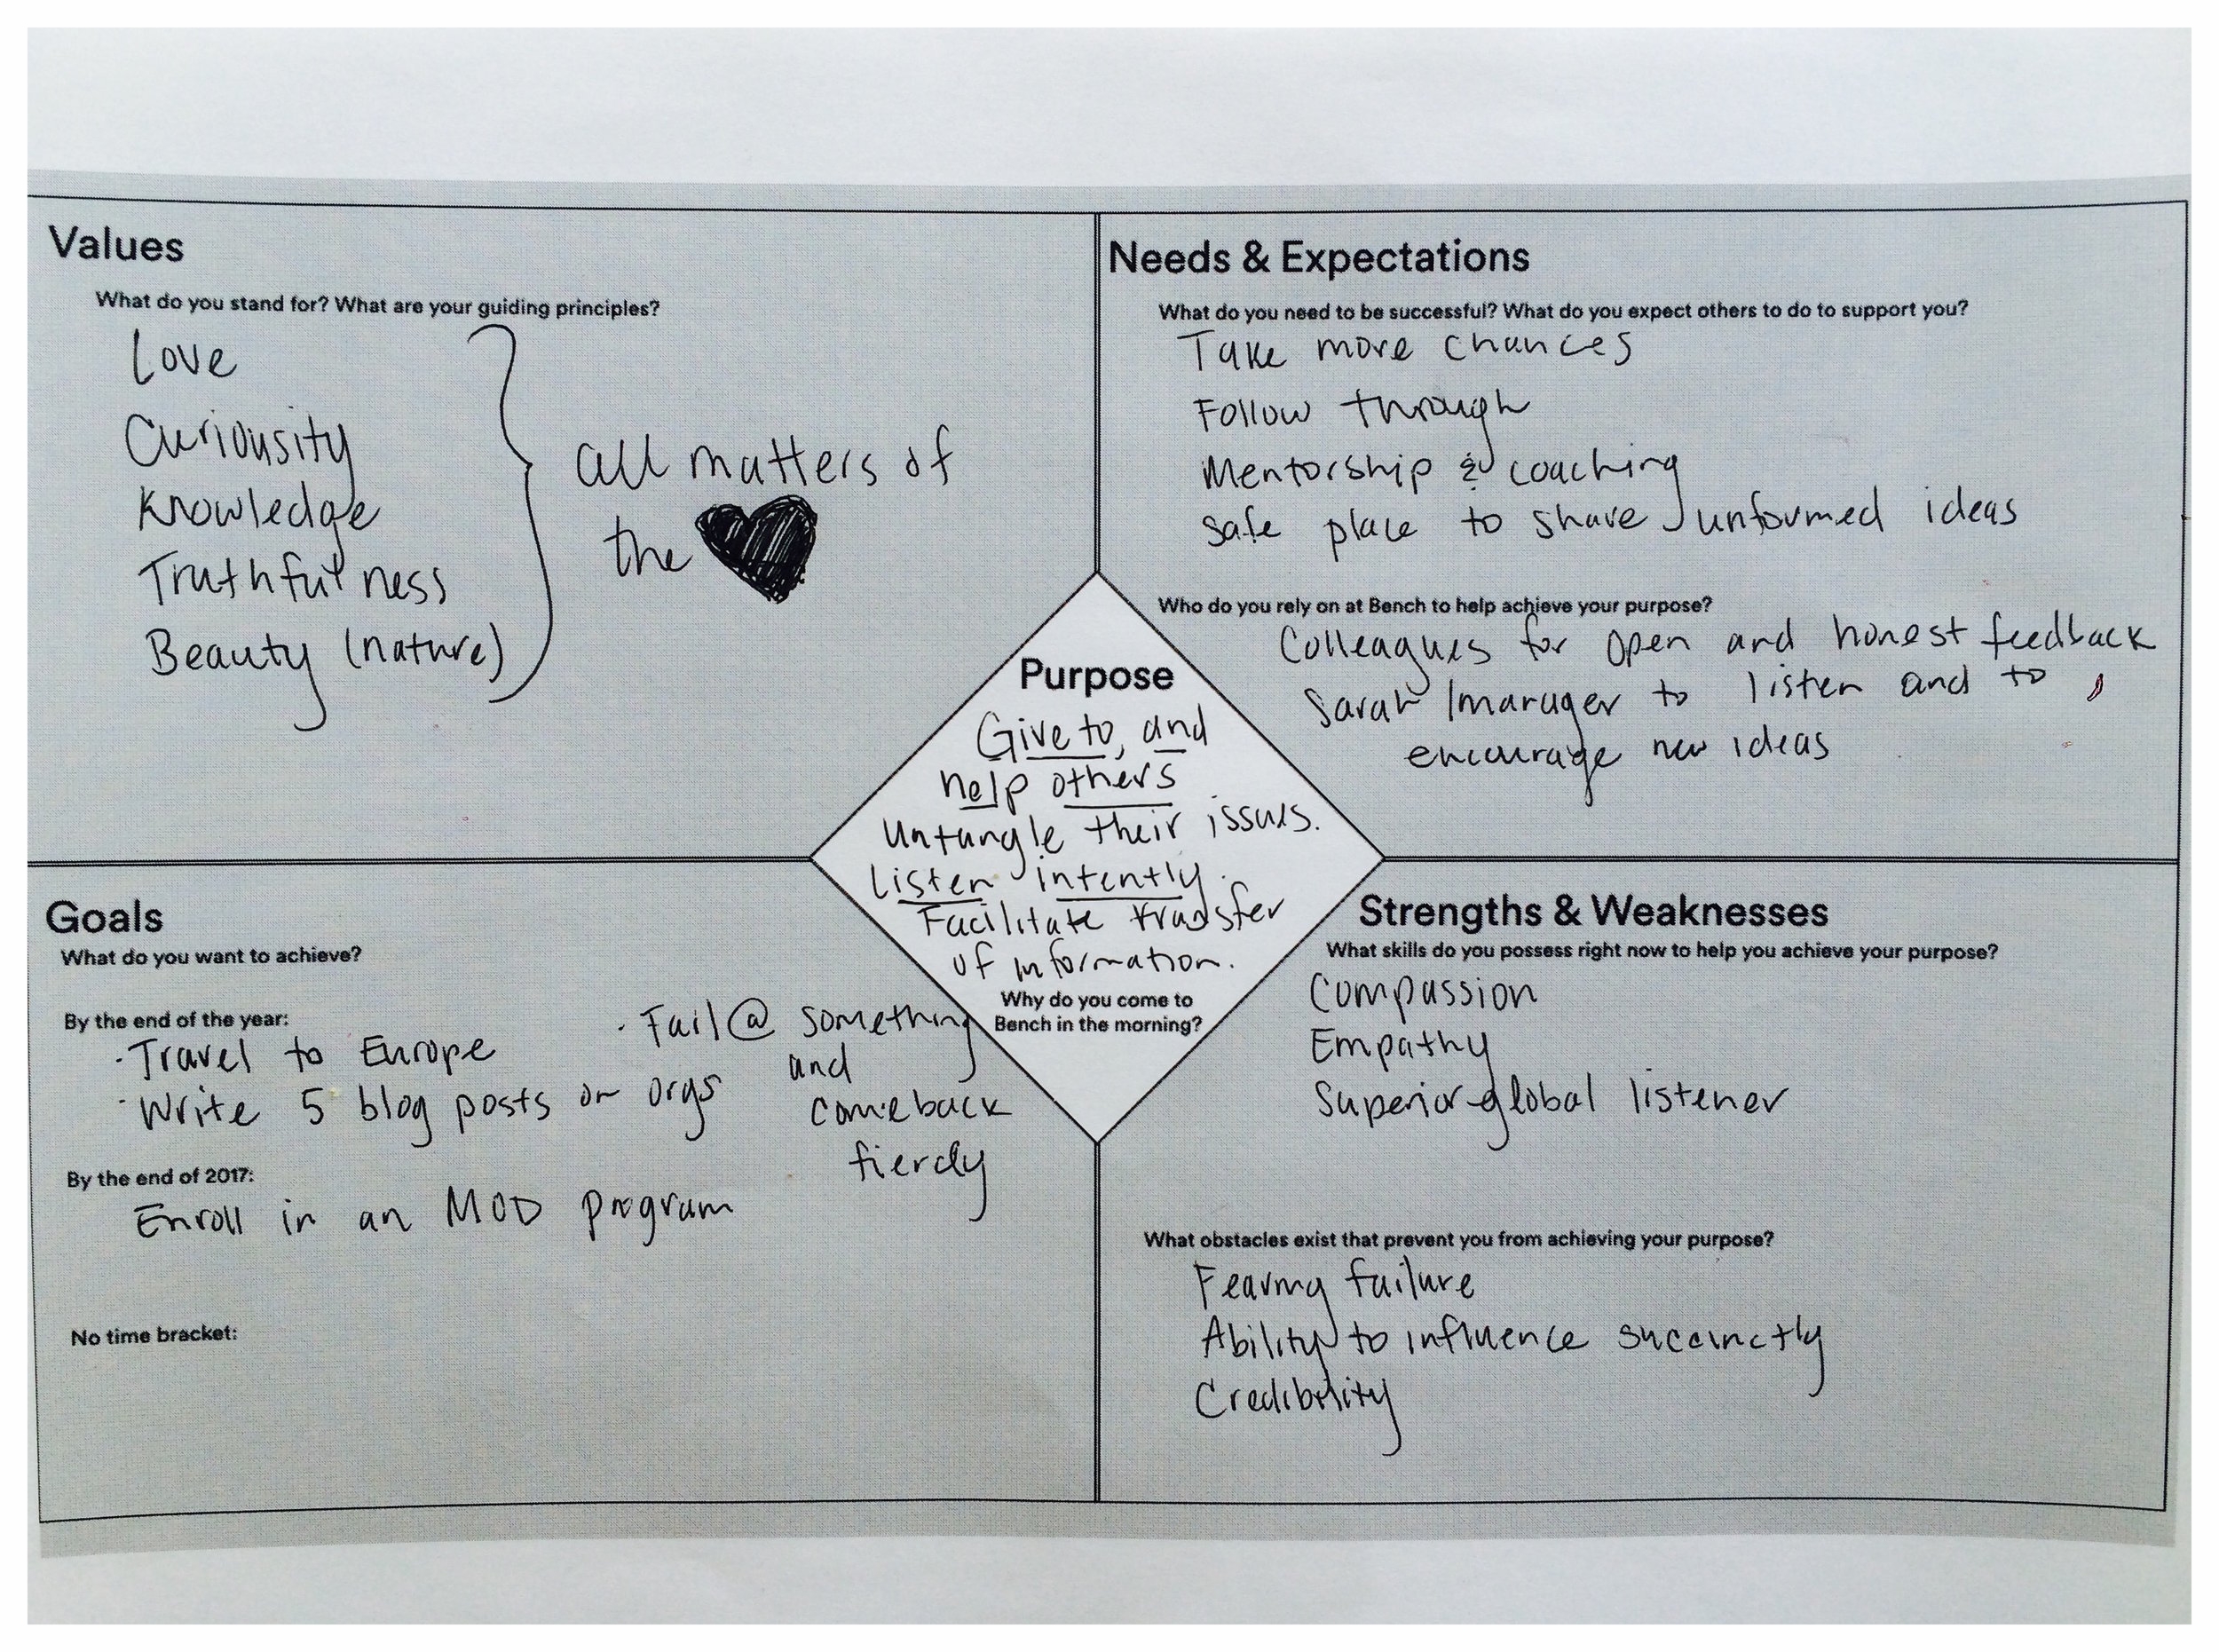 Values
What do you stand for? What are your guiding principles?
Love
Curiousity
Knowledge
Truthfulness
Beauty (nature)
all matters of
the
Needs & Expectations
What do you need to be successful? What do you expect others to do to support you?
Take more chances
Follow through
Mentorship & coaching
Safe place to share unformed ideas
Who do you rely on at Bench to help achieve your purpose?
Colleagues for open and honest feedback
Sarah/manager to listen and to
encourage new ideas
Purpose
Give to, and
help others
untangle their issues.
Listen intently.
Facilitate transfer
of information.
Why do you come to
Bench in the morning?
Goals
What do you want to achieve?
By the end of the year:
· Travel to Europe
· Write 5 blog posts on orgs
· Fail @ something
and
comeback
fiercly
By the end of 2017:
Enroll in an MOD program
No time bracket:
Strengths & Weaknesses
What skills do you possess right now to help you achieve your purpose?
Compassion
Empathy
Superior global listener
What obstacles exist that prevent you from achieving your purpose?
Fearing failure
Ability to influence succinctly
Credibility